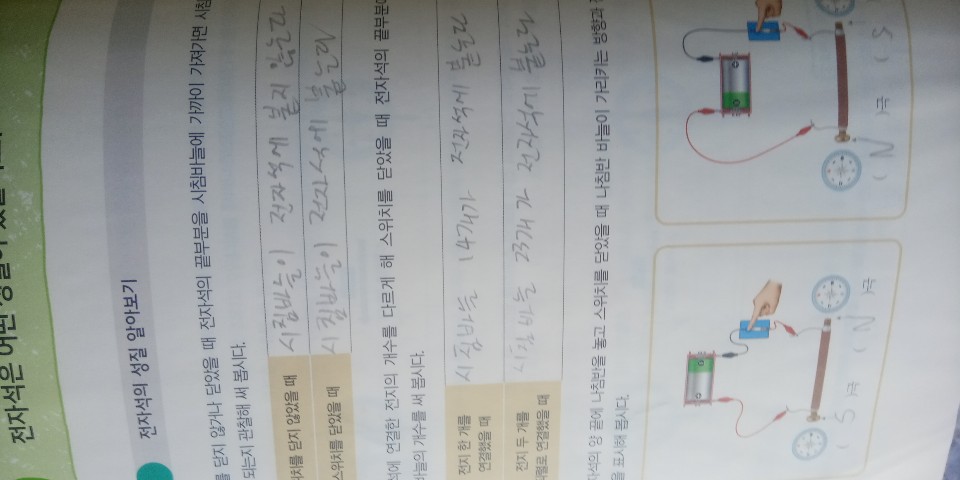 전자석은 어떤 성질이 있을
전자석의 성질 알아보기
를 닫지 않거나 닫았을 때 전자석의 끝부분을 시침바늘에 가까이 가져가면 시침
되는지 관찰해 써 봅시다.
위치를 닫지 않았을 때 시침바늘이 전자석에 붙지 않는다
스위치를 닫았을 때 시침바늘이 전자석에 붙는다
석에 연결한 전지의 개수를 다르게 해 스위치를 닫았을 때 전자석의 끝부분에
바늘의 개수를 써 봅시다.
전지 한 개를
연결했을 때
시침바늘 14개가 전자석에 붙는다
전지 두 개를
직렬로 연결했을 때
시침바늘 23개가 전자석에 붙는다
자석의 양 끝에 나침반을 놓고 스위치를 닫았을 때 나침반 바늘이 가리키는 방향과
을 표시해 봅시다.
( S )극 ( N )극
( N )극 ( S )